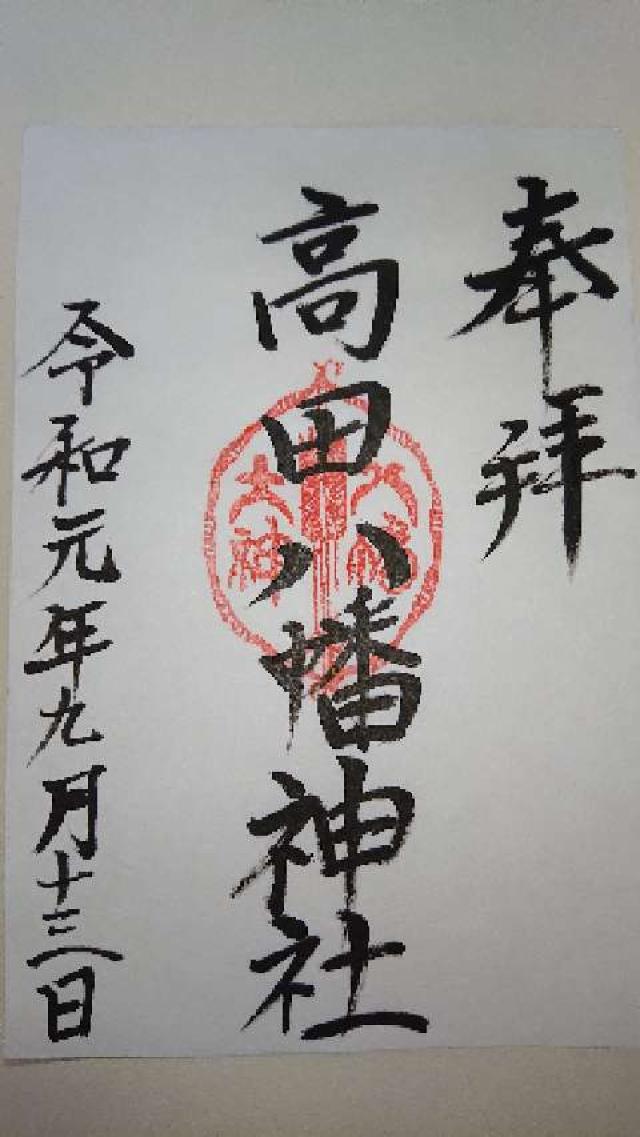 奉拝
高田八幡神社
令和元年九月十三日